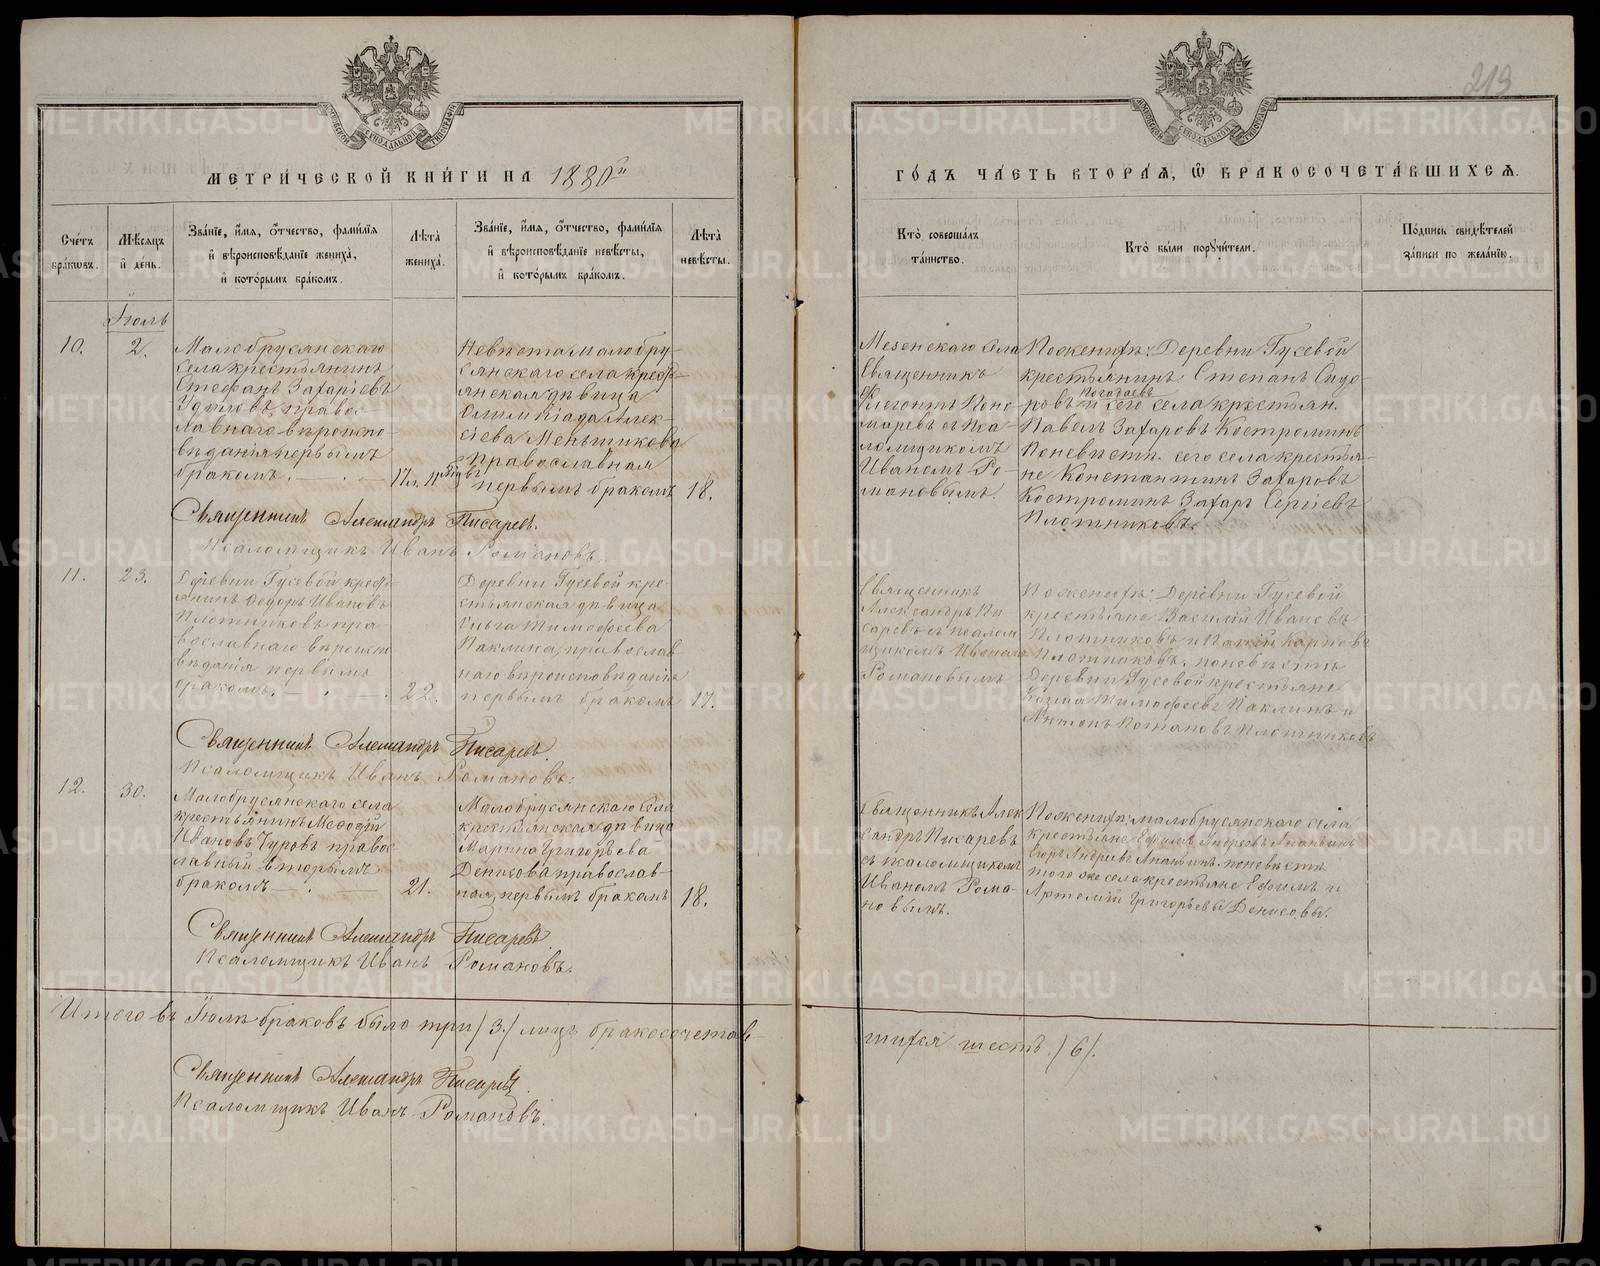 213
МЕТРИ́ЧЕСКОЙ КНИ́ГИ НА 1880й
ГО́ДЪ ЧА́СТЬ ВТОРА́Я, Ѡ БРАКОСОЧЕТА́ВШИХСЯ.
Сче́тъ бра́ковъ.
Мѣ́сяцъ и̂ де́нь.
Зва́нїе, и́мя, ѻ́тчество, фами́лїя и̂ вѣроисповѣ́данїе жениха̀, и̂ кото́рымъ бра́комъ.
Лѣ́та жениха̀.
Зва́нїе, и́мя, ѻ́тчество, фами́лїя и̂ вѣроисповѣ́данїе невѣ́сты, и̂ кото́рымъ бра́комъ.
Лѣ́та невѣ́сты.
Кто̀ соверша́лъ та́инство.
Кто̀ бы́ли поручи́тели.
По́дпись свидѣ́телей за́писи по жела́нїю.
Іюль
10.
2.
Малобрусянскаго
села крестьянинъ
Стефанъ Захаріевъ
православнаго вѣроиспо-
вѣданія первымъ
бракомъ.
17л.
Невѣста Малобру-
сянскаго села крест-
янская дѣвица
Олимпіада Алек-
сіева Меньщикова
православная
первымъ бракомъ
18.
Мезенскаго села
Священникъ
Флегонтъ Поно-
маревъ съ Пса-
ломщикомъ
Иваномъ Ро-
мановымъ.
По женихѣ: Деревни Гусевой
крестьянинъ Степанъ Сидо-
ровъ Погадаевъ и сего села крестьян.
Павелъ Захаровъ Костроминъ
По невѣстѣ. сего села крестья-
не Константинъ Захаровъ
Костроминъ Захаръ Сергіевъ
Плотниковъ.
Священникъ Александръ Писаревъ.
Псаломщикъ Иванъ Романовъ.
11.
23.
Деревни Гусевой крест-
янинъ Ѳедоръ Ивановъ
Плотниковъ пра-
вославнаго вѣроиспо
вѣданія первымъ
бракомъ.
22.
Деревни Гусевой кре-
стьянская дѣвица
Ольга Тимофеева
Паклина, православ
наго вѣроисповѣданія
первымъ бракомъ
17.
Священникъ
Александръ Пи
саревъ съ псалом
щикомъ Иваномъ
Романовымъ
По женихѣ: Деревни Гусевой
крестьяне Василій Ивановъ
Плотниковъ и Карповъ
Плотниковъ. по невѣстѣ
Деревни Гусевой крестьяне
Козма Тимофеевъ Паклинъ и
Антонъ Потаповъ Плотниковъ
Священникъ Александръ Писаревъ.
Псаломщикъ Иванъ Романовъ.
12.
30.
Малобрусянскаго села
крестьянинъ Меѳодій
Ивановъ Чуровъ правос
лавный вторымъ
бракомъ
21.
Малобрусянскаго села
крестьянская дѣвица
Марина Григорьева
Денисова православ-
ная, первымъ бракомъ
18.
Священникъ Алек
сандръ Писаревъ
съ псаломщикомъ
Иваномъ Рома-
новымъ.
По женихѣ: малобрусянскаго села
крестьяне Ефимъ Андреевъ Ананьинъ
Егоръ Андреевъ Ананьинъ. по невѣстѣ
того же села крестьяне Ефимъ и
Артемій Григорьевы Денисовы.
Священникъ Александръ Писаревъ.
Псаломщикъ Иванъ Романовъ.
Итого въ Іюлѣ браковъ было три /3./ лицъ бракосочетав-
шихся шесть /6/.
Священникъ Александръ Писаревъ.
Псаломщикъ Иванъ Романовъ.
METRIKI.GASO-URAL.RU